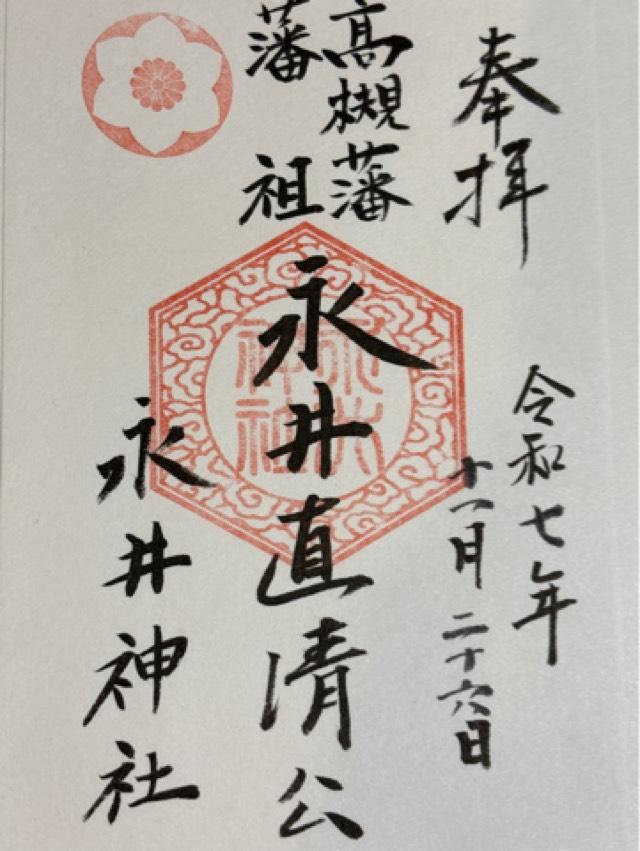 奉拝
令和七年
十一月二十六日
高槻藩
藩祖
永井直清公
永井神社